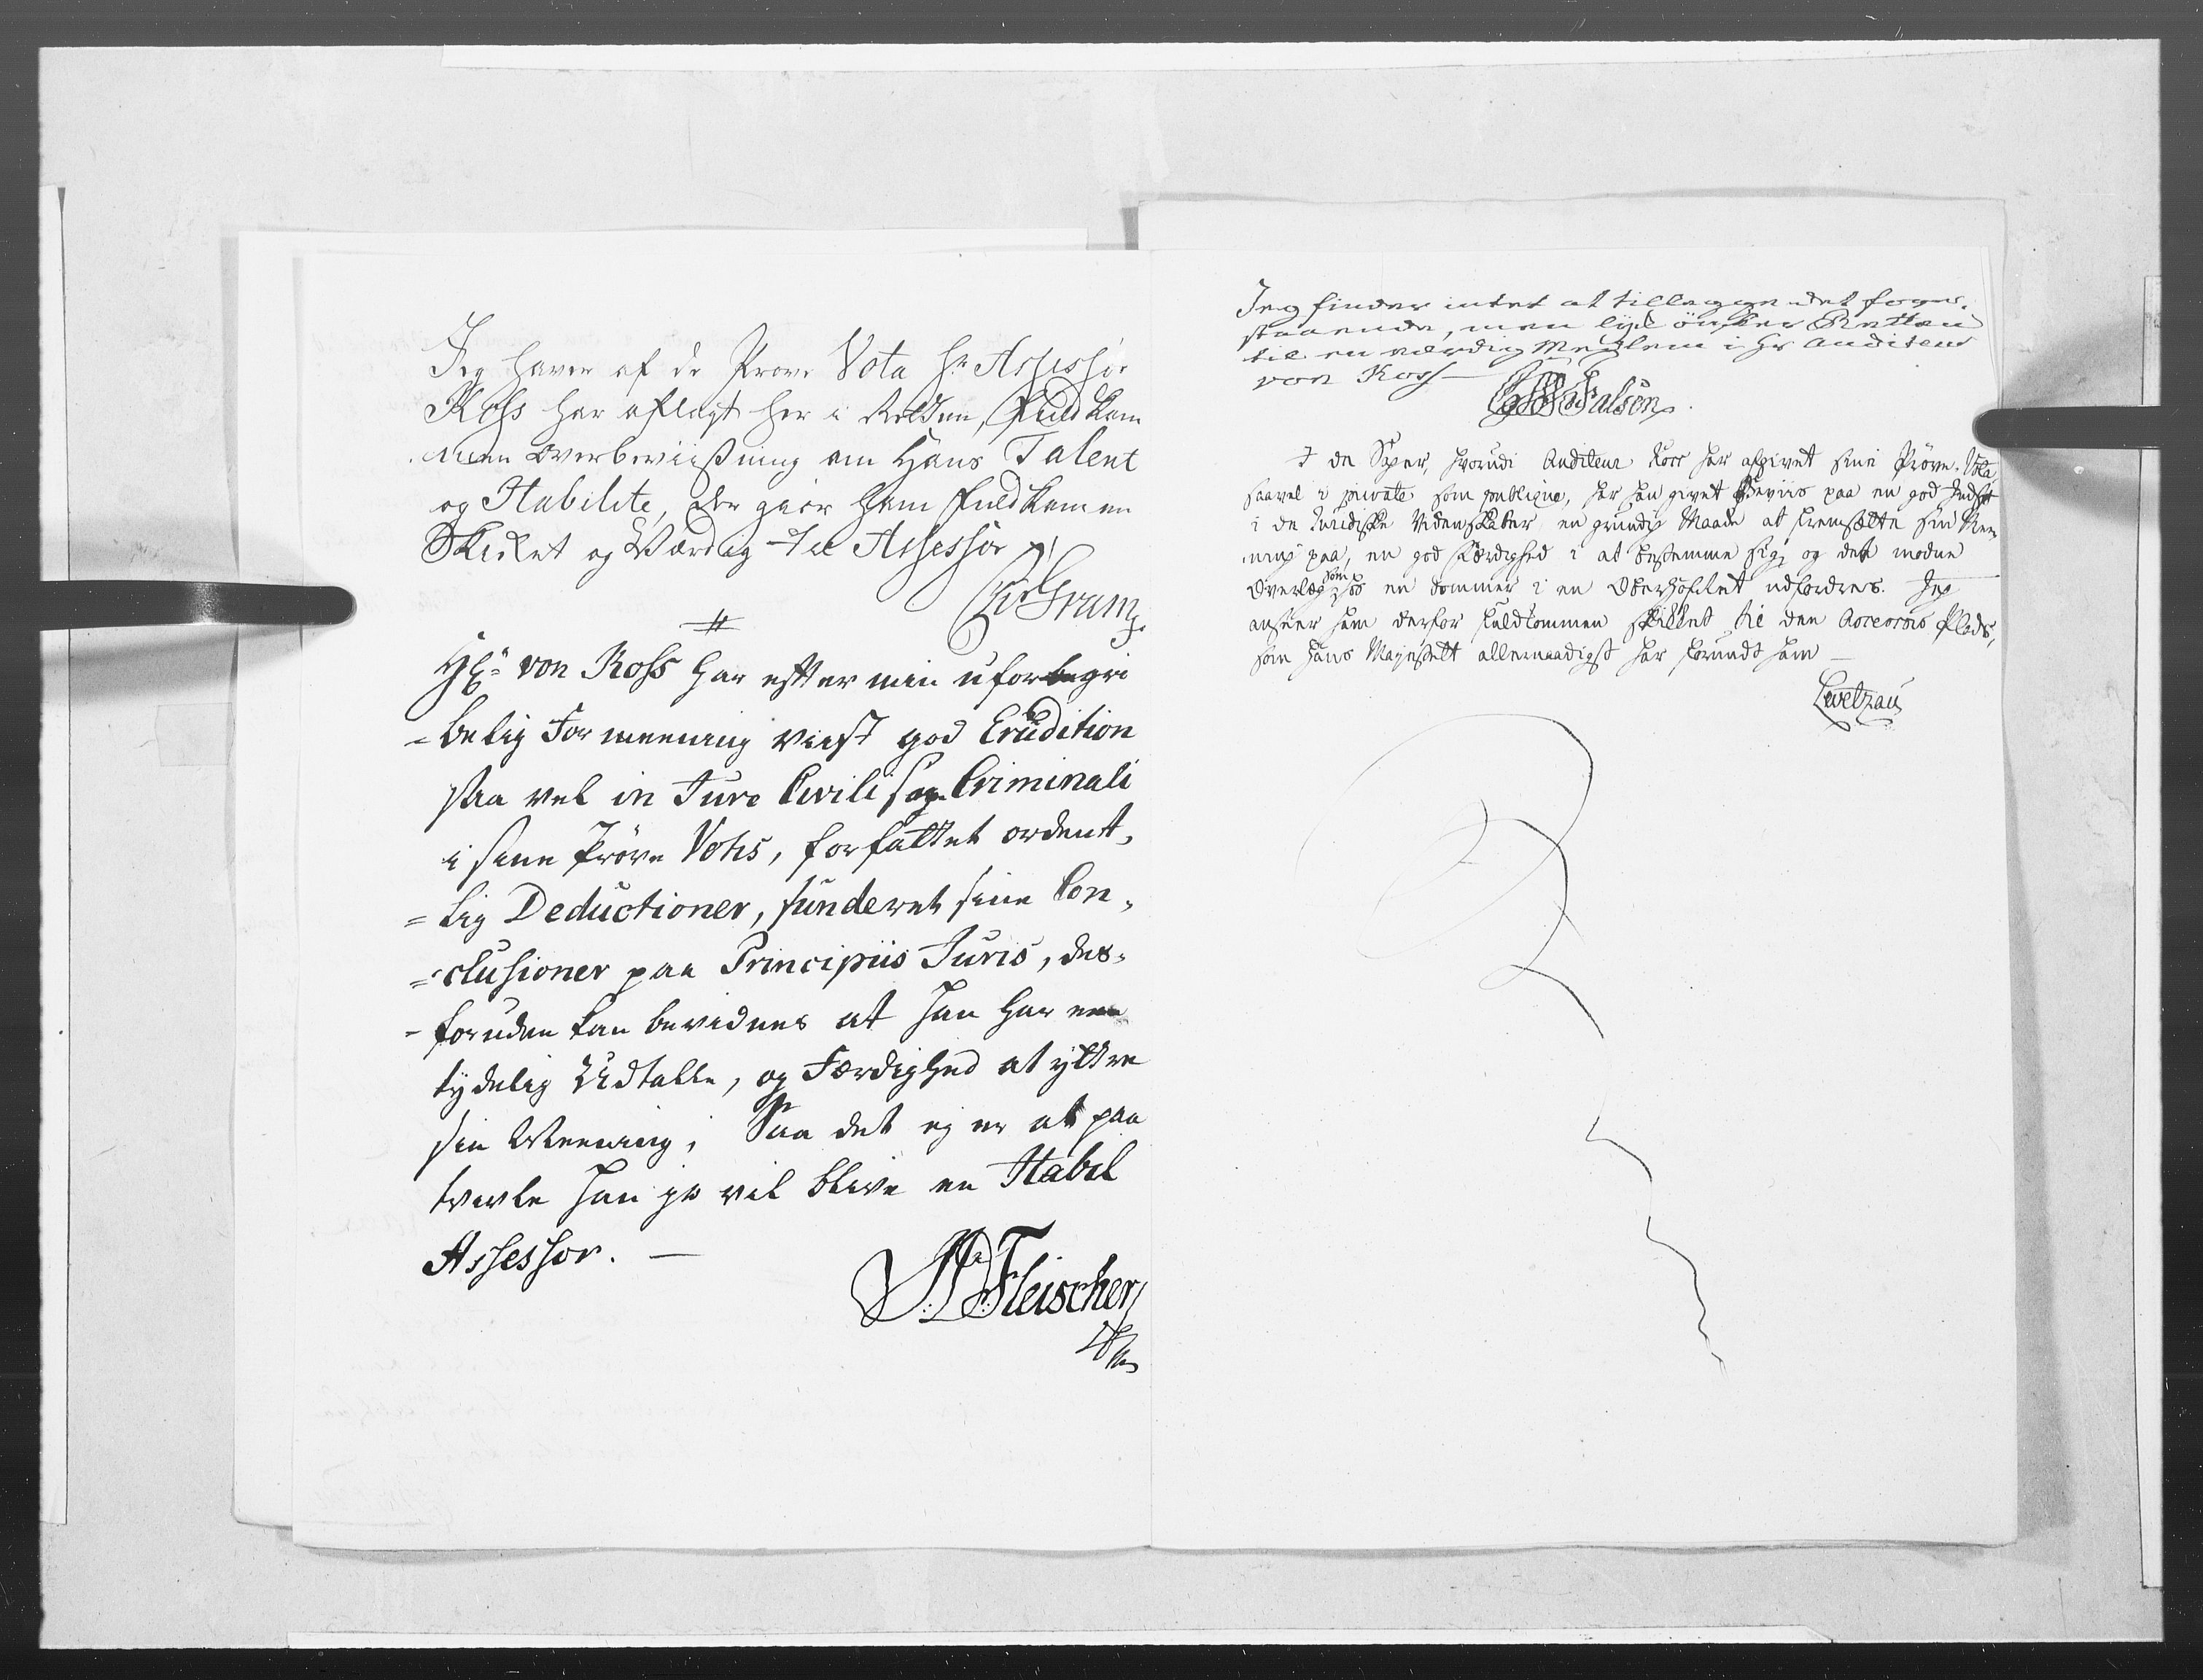 Jeg haver af de Prøve Vota Hr Assessor
Koss har aflagt her i Retten, Fuldkom
men Overbeviisning om Hans Talent
og Habilite, der giør ham fuldkommen
Skicket og Værdig til Assessor
Gram
Hr. von Koss har efter min uforbegri
=belig Formeening viist god Erudition
saa vel in Jure Civili som Criminali
i sine Prøve Votis, forfattet ordent,
=lig Deductioner, funderet sine Con,
=clusioner paa Principiis Juris, des,
-foruden kan bevidnes at han har een
tydelig Udtalle, og Færdighed at yttre
sin Meening; Saa det ej er at paa
tvivle han jo vil blive en Habil
Assessor. —
Fleischer
Jeg finder intet at tillegge det foran-
staaende, men lyk ønsker Retten
til en værdig Medlem i Hr Auditeur
von Koss —
Falsen
I de Sager, hvorudi Auditeur Koss har afgivet sine Prøve-Vota,
saavel i private som publique, har han givet Beviis paa en god Indsigt
i de Juridiske Videnskaber, en grundig Maade at fremsætte sin Mee,
ning paa, en god Færdighed i at bestemme sig, og det modne
Overlæg som hos en Dommer i en Oberhofret udfordres. Jeg
anseer ham derfor fuldkommen skikket til den Assessors Plads,
som Hans Majestætt allernaadigst har forundt ham —
Lwetzau